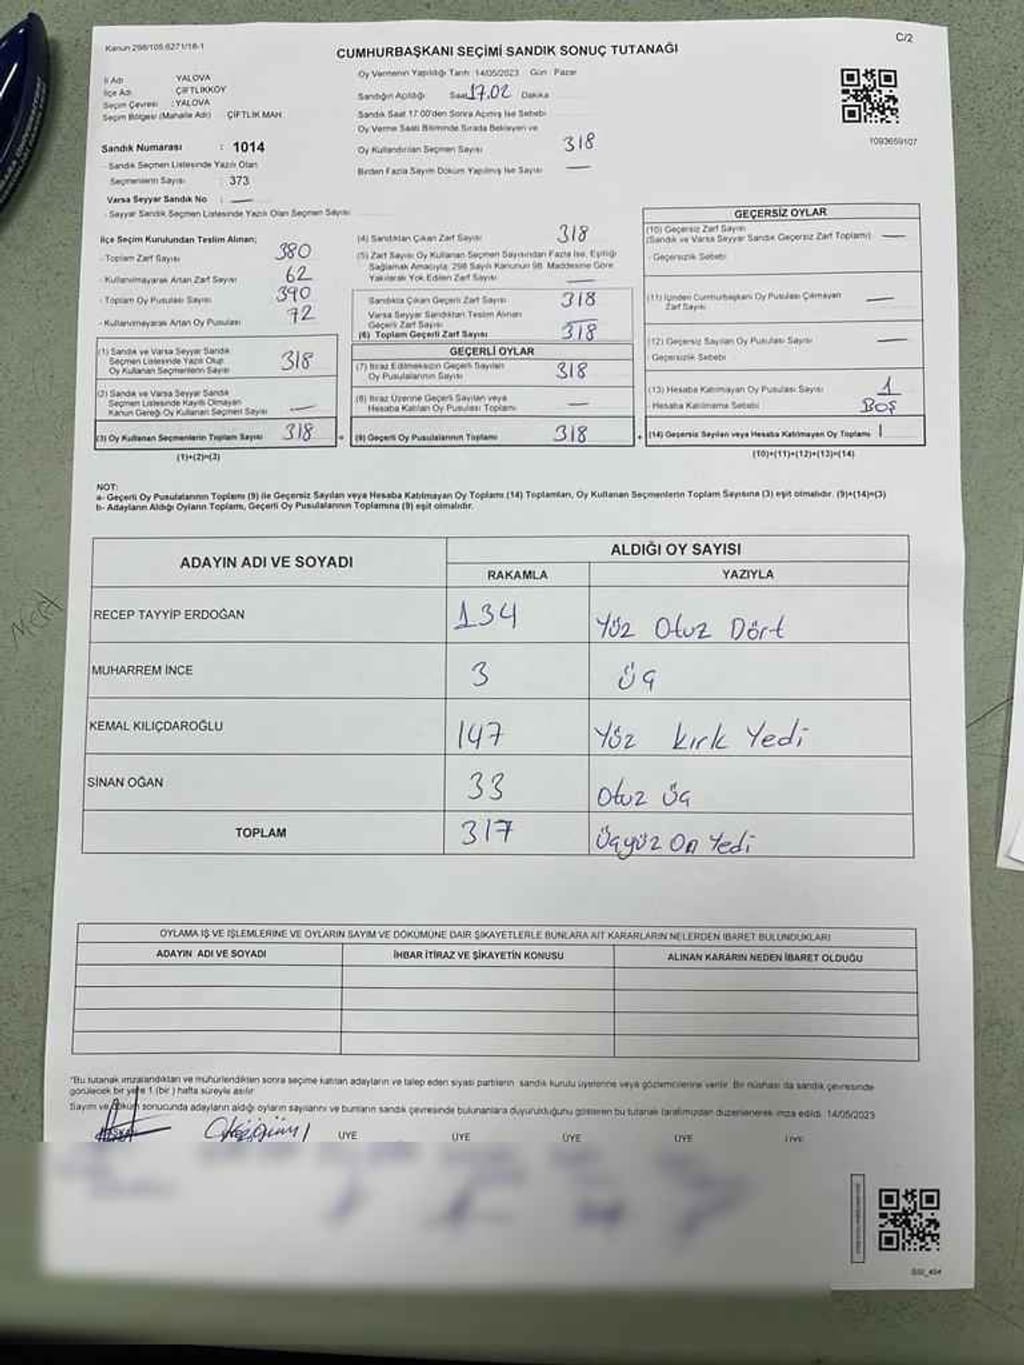 Kanun 298/105 6271/16-1
C/2
CUMHURBAŞKANI SEÇİMİ SANDIK SONUÇ TUTANAĞI
İl Adı YALOVA
İlçe Adı ÇİFTLİKKÖY
Seçim Çevresi : YALOVA
Seçim Bölgesi (Mahalle Adı) ÇİFTLİK MAH
Oy Vermenin Yapıldığı Tarih: 14/05/2023 Gün : Pazar
Sandığın Açıldığı Saat 17.02 Dakika
Sandık Saat 17.00'den Sonra Açılmış İse Sebebi
Oy Verme Saati Bitiminde Sırada Bekleyen ve
Oy Kullandırılan Seçmen Sayısı 318
Birden Fazla Sayım Döküm Yapılmış İse Sayısı —
1093659107
Sandık Numarası : 1014
Sandık Seçmen Listesinde Yazılı Olan
Seçmenlerin Sayısı : 373
Varsa Seyyar Sandık No : —
- Seyyar Sandık Seçmen Listesinde Yazılı Olan Seçmen Sayısı
İlçe Seçim Kurulundan Teslim Alınan;
- Toplam Zarf Sayısı 380
- Kullanılmayarak Artan Zarf Sayısı 62
- Toplam Oy Pusulası Sayısı 390
- Kullanılmayarak Artan Oy Pusulası 72
(1) Sandık ve Varsa Seyyar Sandık
Seçmen Listesinde Yazılı Olup
Oy Kullanan Seçmenlerin Sayısı 318
(2) Sandık ve Varsa Seyyar Sandık
Seçmen Listesinde Kayıtlı Olmayan
Kanun Gereği Oy Kullanan Seçmen Sayısı —
(3) Oy Kullanan Seçmenlerin Toplam Sayısı 318
(1)+(2)=(3)
(4) Sandıktan Çıkan Zarf Sayısı 318
(5) Zarf Sayısı Oy Kullanan Seçmen Sayısından Fazla İse, Eşitliği
Sağlamak Amacıyla, 298 Sayılı Kanunun 98. Maddesine Göre
Yakılarak Yok Edilen Zarf Sayısı —
Sandıkta Çıkan Geçerli Zarf Sayısı 318
Varsa Seyyar Sandıktan Teslim Alınan
Geçerli Zarf Sayısı —
(6) Toplam Geçerli Zarf Sayısı 318
GEÇERLİ OYLAR
(7) İtiraz Edilmeksizin Geçerli Sayılan
Oy Pusulalarının Sayısı 318
(8) İtiraz Üzerine Geçerli Sayılan veya
Hesaba Katılan Oy Pusulası Toplamı —
= (9) Geçerli Oy Pusulalarının Toplamı 318
GEÇERSİZ OYLAR
(10) Geçersiz Zarf Sayısı
(Sandık ve Varsa Seyyar Sandık Geçersiz Zarf Toplamı) —
- Geçersizlik Sebebi
(11) İçinden Cumhurbaşkanı Oy Pusulası Çıkmayan
Zarf Sayısı —
(12) Geçersiz Sayılan Oy Pusulası Sayısı —
Geçersizlik Sebebi
(13) Hesaba Katılmayan Oy Pusulası Sayısı 1
- Hesaba Katılmama Sebebi BOŞ
+ (14) Geçersiz Sayılan veya Hesaba Katılmayan Oy Toplamı 1
(10)+(11)+(12)+(13)=(14)
NOT:
a- Geçerli Oy Pusulalarının Toplamı (9) ile Geçersiz Sayılan veya Hesaba Katılmayan Oy Toplamı (14) Toplamları, Oy Kullanan Seçmenlerin Toplam Sayısına (3) eşit olmalıdır. (9)+(14)=(3)
b- Adayların Aldığı Oyların Toplamı, Geçerli Oy Pusulalarının Toplamına (9) eşit olmalıdır.
ADAYIN ADI VE SOYADI
ALDIĞI OY SAYISI
RAKAMLA YAZIYLA
RECEP TAYYİP ERDOĞAN 134 Yüz Otuz Dört
MUHARREM İNCE 3 üç
KEMAL KILIÇDAROĞLU 147 Yüz Kırk Yedi
SİNAN OĞAN 33 Otuz üç
TOPLAM 317 Üçyüz On Yedi
OYLAMA İŞ VE İŞLEMLERİNE VE OYLARIN SAYIM VE DÖKÜMÜNE DAİR ŞİKAYETLERLE BUNLARA AİT KARARLARIN NELERDEN İBARET BULUNDUKLARI
ADAYIN ADI VE SOYADI İHBAR İTİRAZ VE ŞİKAYETİN KONUSU ALINAN KARARIN NEDEN İBARET OLDUĞU
"Bu tutanak imzalandıktan ve mühürlendikten sonra seçime katılan adayların ve talep eden siyasi partilerin sandık kurulu üyelerine veya gözlemcilerine verilir. Bir nüshası da sandık çevresinde
görülecek bir yere 1 (bir) hafta süreyle asılır
Sayım ve döküm sonucunda adayların aldığı oyların sayılarını ve bunların sandık çevresinde bulunanlara duyurulduğunu gösteren bu tutanak tarafımızdan düzenlenerek imza edildi. 14/05/2023
BAŞKAN ÜYE ÜYE ÜYE ÜYE ÜYE